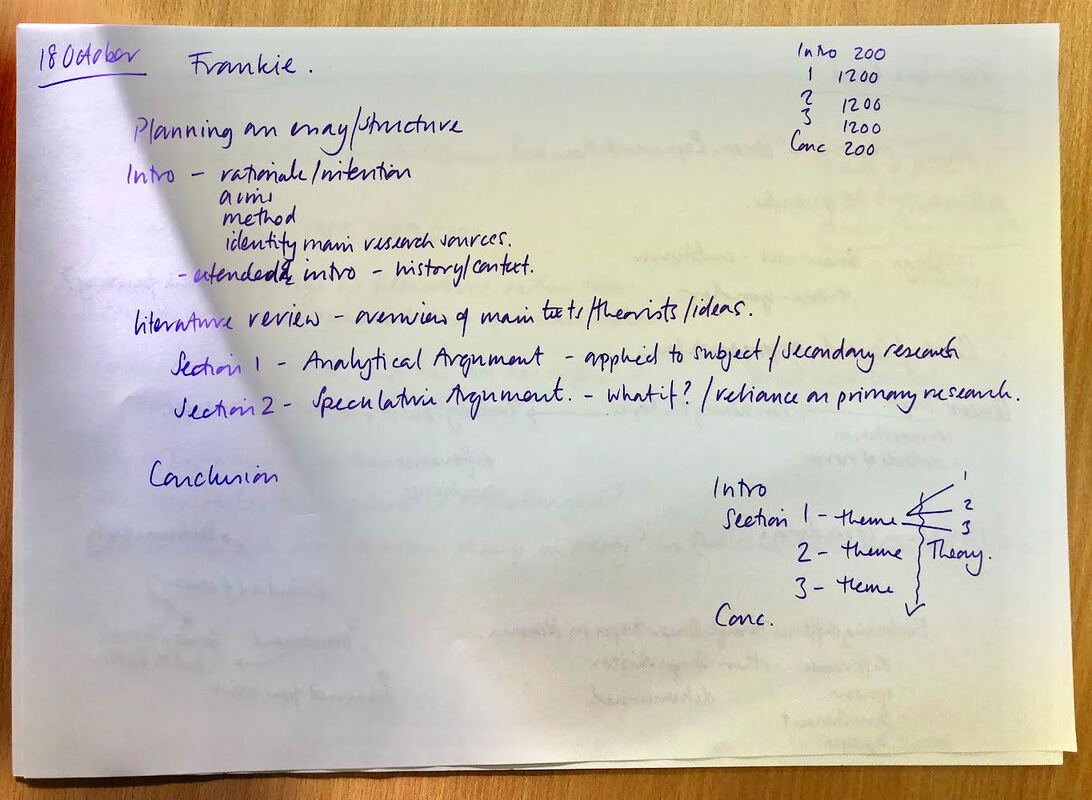 18 October
Frankie.
Intro 200
1 1200
2 1200
3 1200
Conc 200
Planning an essay/structure
Intro - rationale/intention
aims
method
identify main research sources.
- extended intro - history/context.
Literature review - overview of main texts/theorists/ideas.
Section 1 - Analytical Argument - applied to subject/secondary research
Section 2 - Speculative Argument. - what if? / reliance on primary research.
Conclusion
Intro
Section 1 - theme
1
2
3
2 - theme
Theory.
3 - theme
Conc.